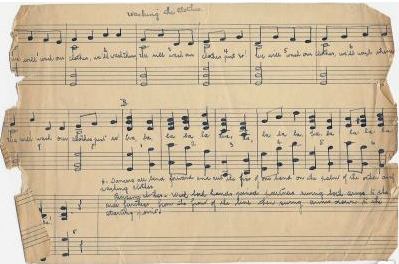 Washing the Clothes.
we will wash our clothes, we'll wash them we will wash our clothes just so' we will wash our clothes, we'll wash
2 3 4 5 6
B
we will wash our clothes just so' la, la, la, la, la, la, la, la, la, la, la, la,
7 8 1 2 3 4 5 6
Dancers all bend forward and rub the of one hand on the palm of the other as if
washing clothes.
clothes - With both hands joined partners swing both arms to the
side farthest from the front of the line then swing arms down to the
starting point.